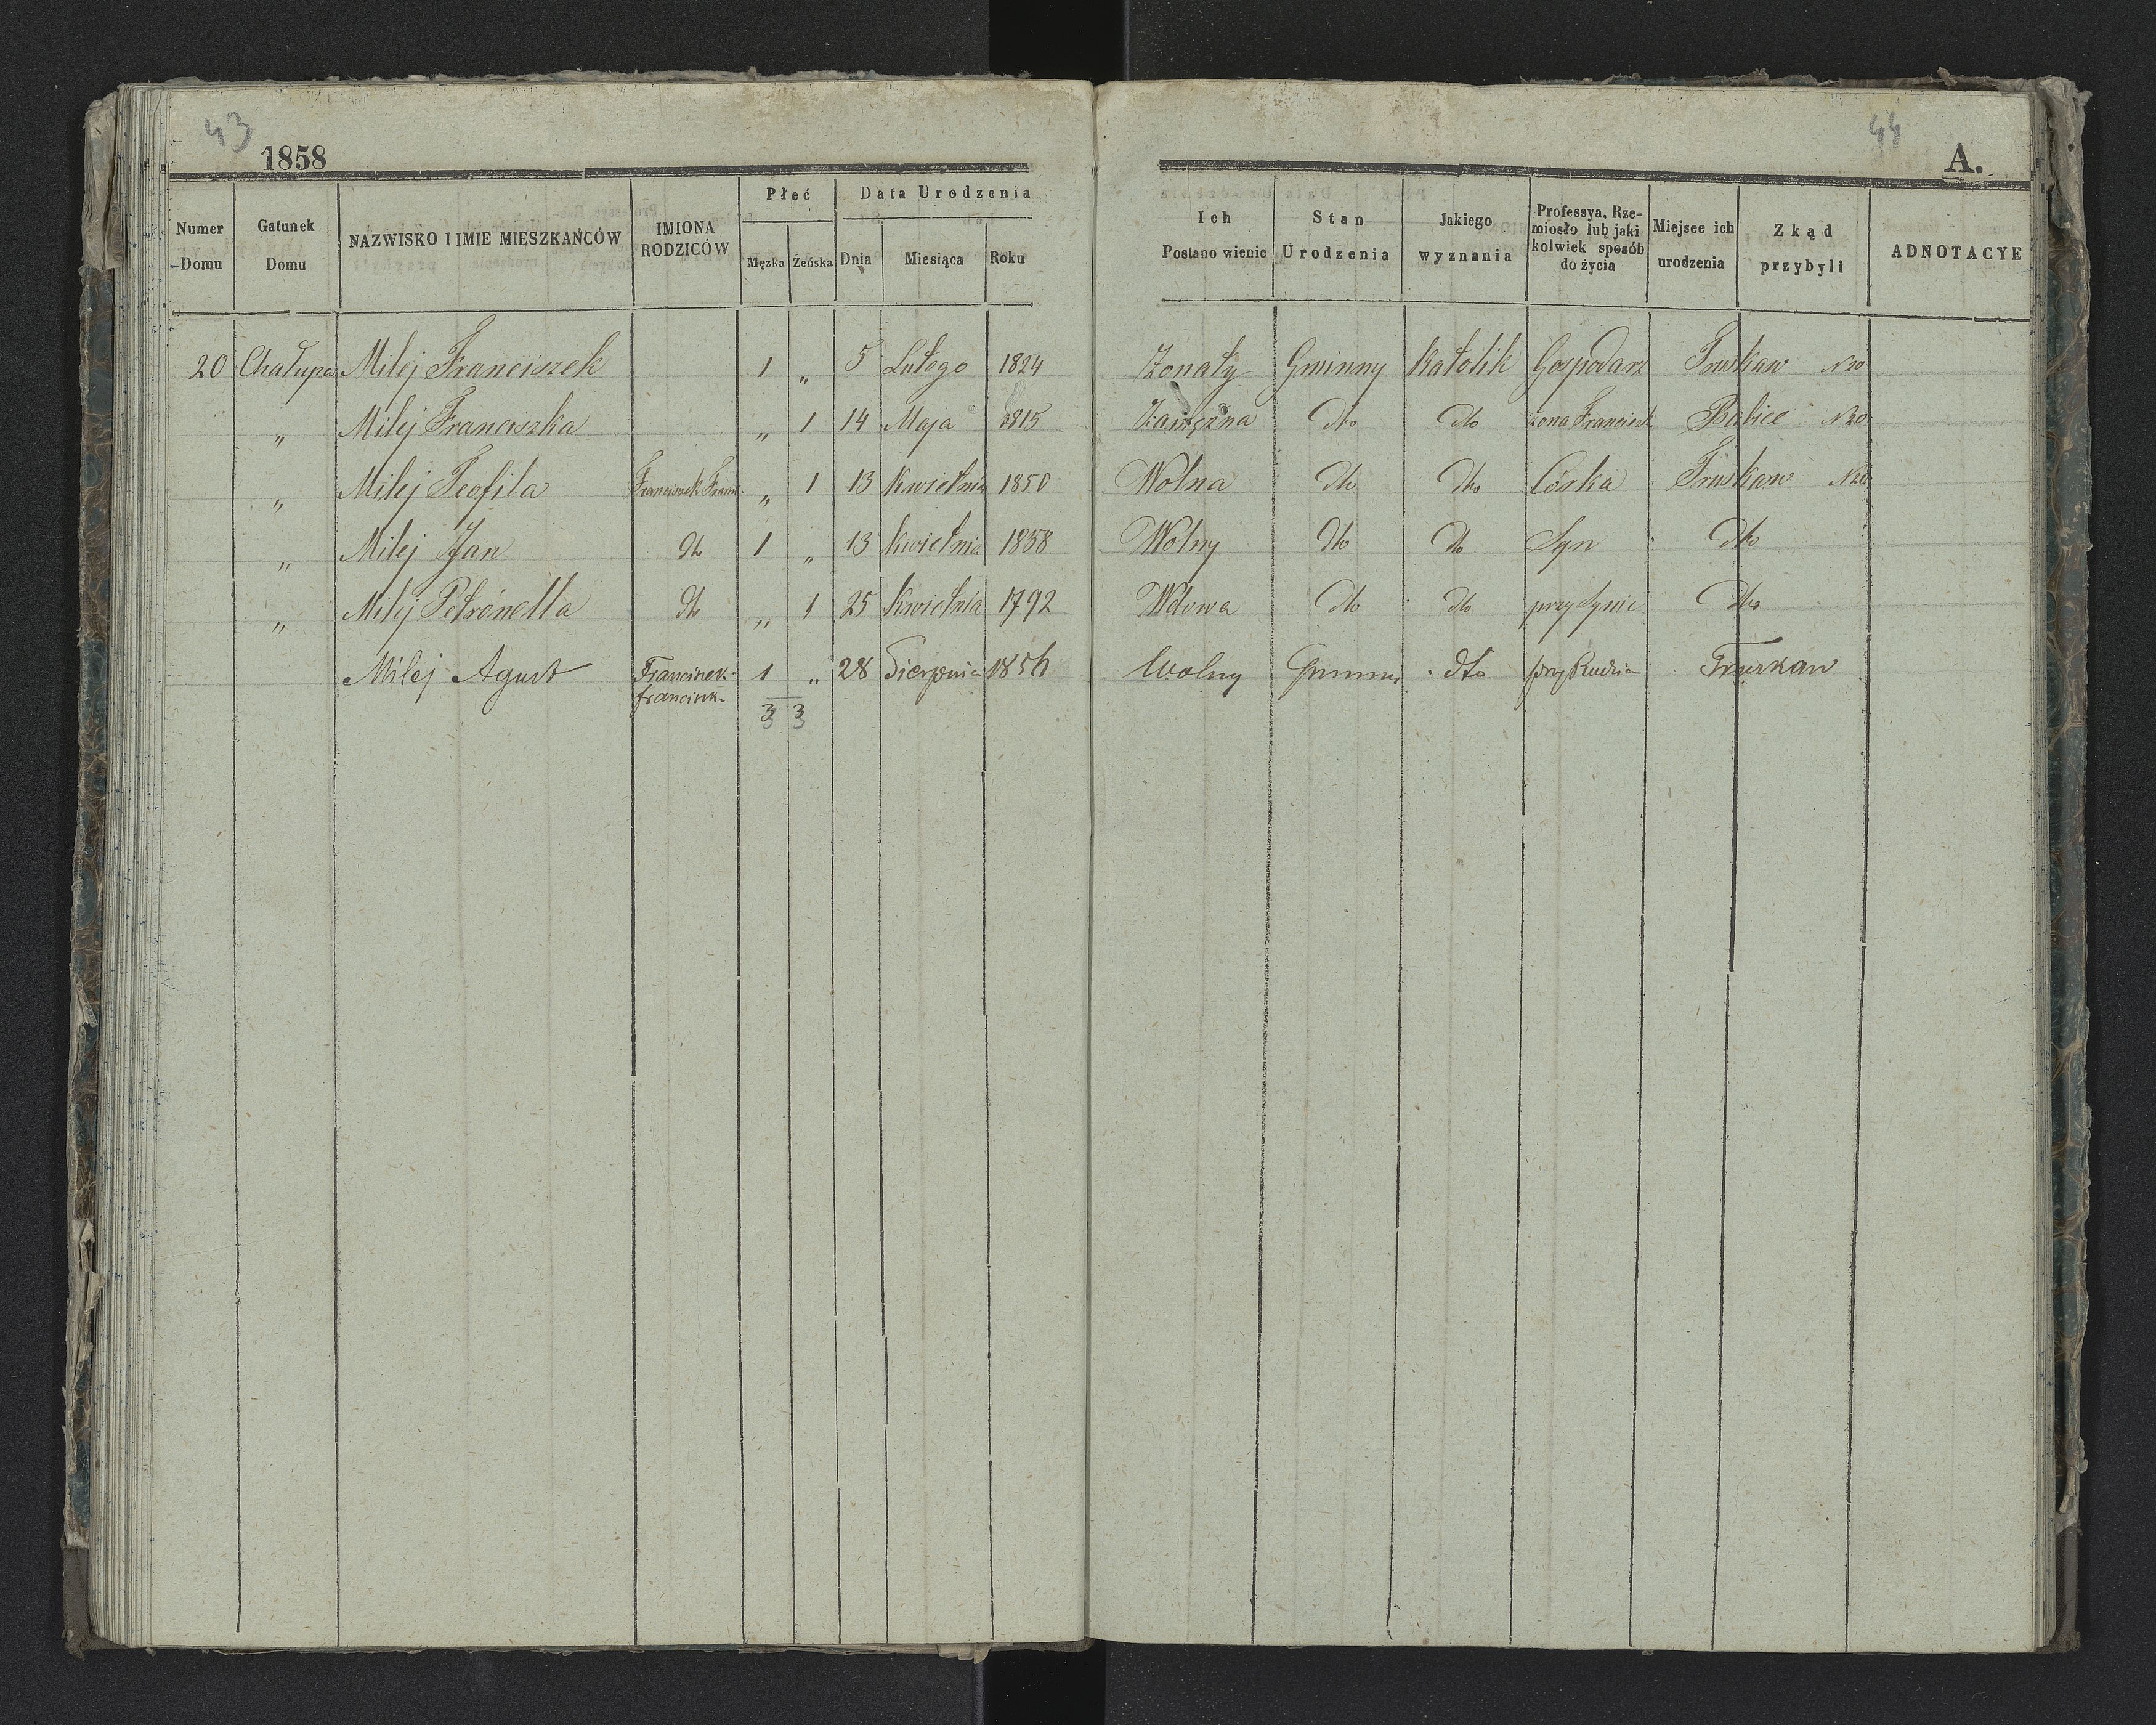 43
1858
Numer Domu
Gatunek Domu
NAZWISKO I IMIE MIESZKAŃCÓW
IMIONA RODZICÓW
Płeć
Męzka
Żeńska
Data Urodzenia
Dnia
Miesiąca
Roku
20 Chałupa Milej Franciszek 1 „ 5 Lutego 1824
„ Milej Franciszka „ 1 14 Maja 1815
„ Milej Teofila Franciszek Franc. „ 1 13 Kwietnia 1850
„ Milej Jan dto 1 „ 13 Kwietnia 1858
„ Milej Petronella dto „ 1 25 Kwietnia 1792
Milej Agust Francisek 1 „ 28 Sierpnia
3 3
44
A.
Ich Postano wienie
Stan Urodzenia
Jakiego wyznania
Professya, Rze-
miosło lub jaki
kolwiek sposób
do życia
Miejsce ich urodzenia
Zkąd przybyli
ADNOTACYE
Żonaty Gminny Katolik Gospodarz Truskaw N 20
Zamężna dto dto żona Babice N 20
Wolna dto dto Córka Truskaw N 20
Wolny dto dto Syn dto
Wdowa dto dto przy Synie dto
Wolny dto przy Truskaw